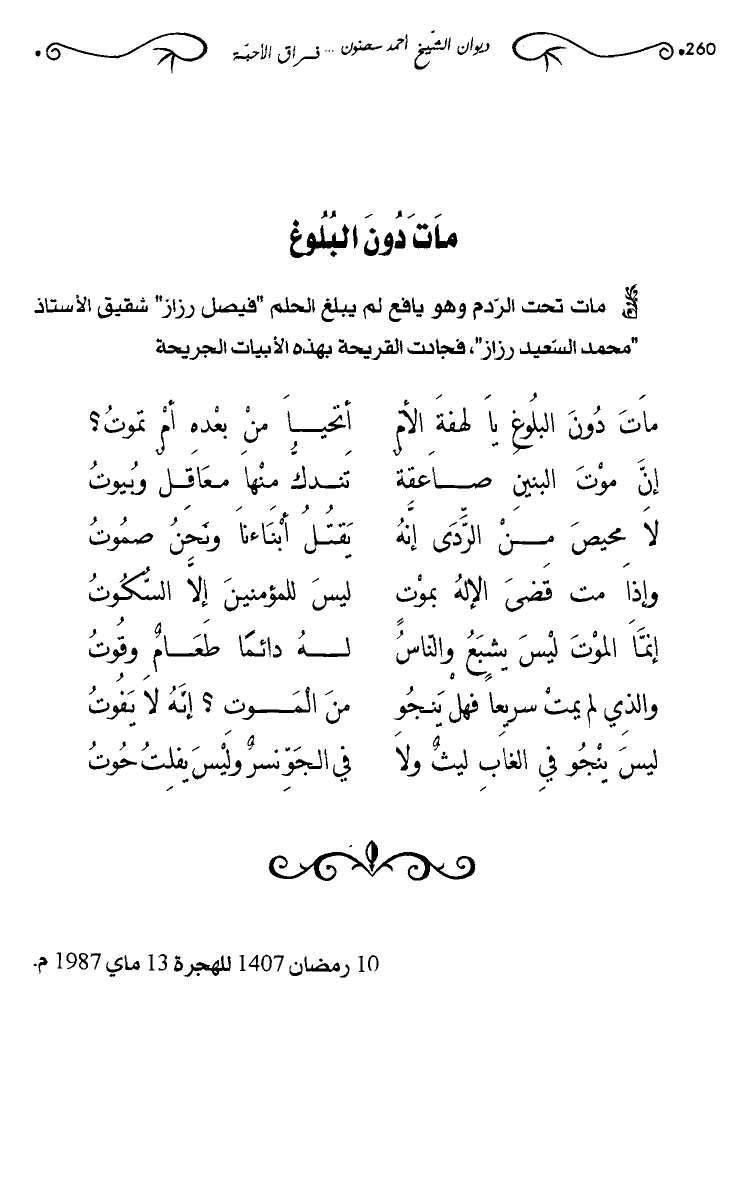 260 ديوان الشّيخ أحمد سحنون ... فراق الأحبّة
مَاتَ دُونَ البُلُوغِ
مات تحت الرّدم وهو يافع لم يبلغ الحلم "فيصل رزاز" شقيق الأستاذ
"محمد السّعيد رزاز"، فجادت القريحة بهذه الأبيات الجريحة
مَاتَ دُونَ البُلُوغِ يا لهفةَ الأمِّ أتحيــا مِنْ بعْدِهِ أمْ تموتُ؟
إنَّ موْتَ البنينِ صــاعقةٌ تنــدكُّ منْها معَاقــل وبُيوتُ
لاَ محيصَ مــنْ الرَّدَى إنَّهُ يَقتُــلُ أبْنَاءنا ونَحنُ صمُوتُ
وإذَا مت قضىَ الإلهُ بموْتٍ ليسَ للمؤمنينَ إلاَّ السُّكُوتُ
إنمَّا الموْتَ ليْسَ يشبَعُ والنّاسُ لــهُ دائمًا طعَــامٌ وقُوتُ
والذي لم يمتْ سريعاً فهلْ يَنجُو مِنَ الْمَــوتِ ؟ إنَّهُ لاَ يَفُوتُ
ليسَ ينْجُو فِي الغابِ ليثٌ ولاَ فِي الجَوّ نسرٌ وليْسَ يفلِتُ حُوتُ
10 رمضان 1407 للهجرة 13 ماي 1987 م.